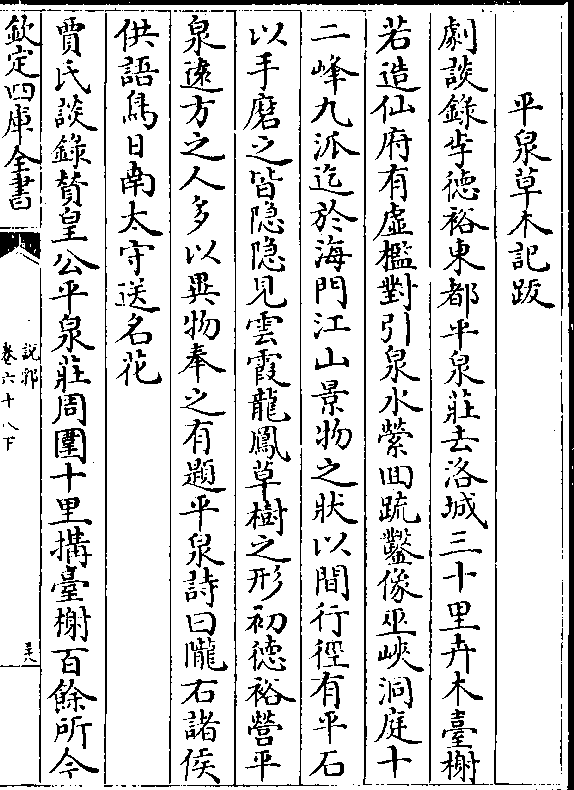 平泉草木記跋
劇談錄李德裕東都平泉莊去洛城三十里卉木臺榭
若造仙府有虛檻對引泉水縈回䟽鑿像巫峽洞庭十
二峰九派迄於海門江山景物之狀以間行徑有平石
以手磨之皆隱隱見雲霞龍鳳草樹之形初德裕營平
泉遠方之人多以異物奉之有題平泉詩曰隴右諸侯
供語鳥日南太守送名花
賈氏談錄賛皇公平泉莊周圍十里搆臺榭百餘所今
欽定四庫全書
說郛
卷六十八下